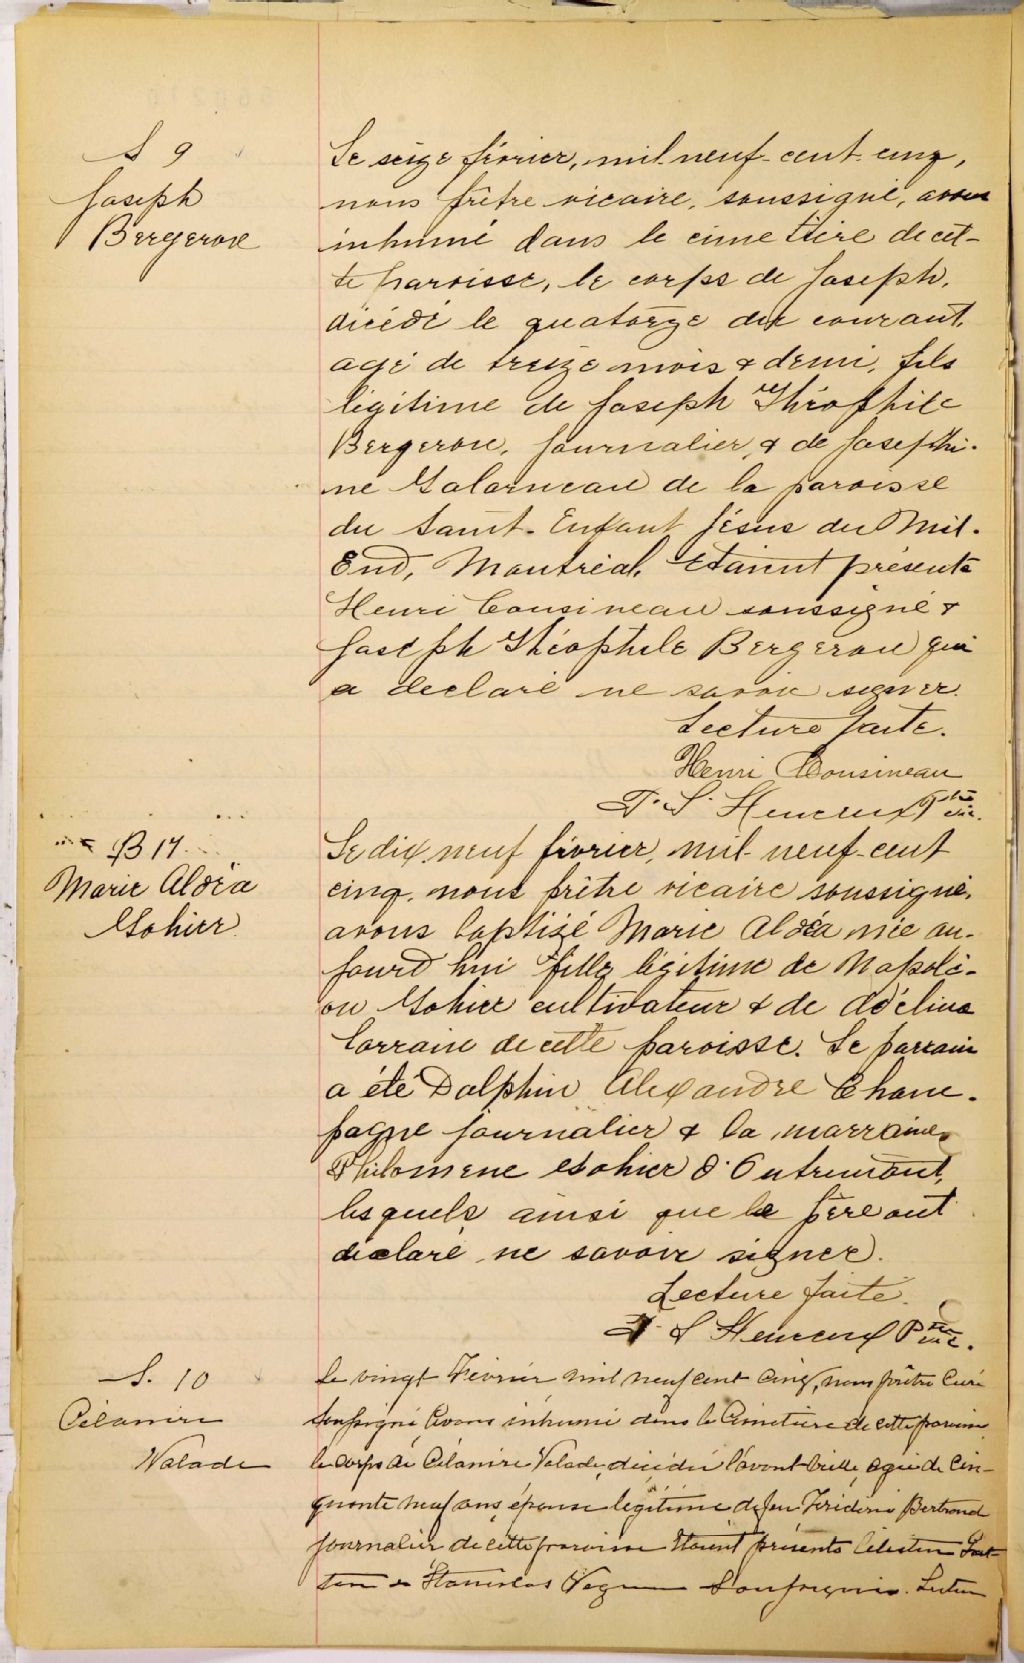 S 9
Joseph
Bergeron
Le seize février, mil neuf-cent-cinq,
nous prêtre vicaire, soussigné, avons
inhumé dans le cimetière de cet-
te paroisse, le corps de Joseph,
décédé le quatorze du courant,
agé de treize mois & demi, fils
légitime de Joseph Théophile
Bergeron, journalier, & de Joséphi-
ne Galarneau de la paroisse
du Saint-Enfant Jésus du Mil-
End, Montréal. Etaient présents
Henri Cousineau soussigné &
Joseph Théophile Bergeron qui
a déclaré ne savoir signer.
Lecture faite.
Henri Cousineau
Ptre vic.
B 17
Marie Aldéa
Gohier
Le dix neuf février, mil-neuf-cent
cinq, nous prêtre vicaire soussigné,
avons baptisé Marie Aldéa née au-
jourd'hui fille légitime de Napolé-
on Gohier cultivateur & de
Lorrain de cette paroisse. Le parrain
a été Dolphin Alexandre Cham-
pagne journalier & la marraine
Philomene Gohier d'Outremont,
lesquels ainsi que le père ont
déclaré ne savoir signer.
Lecture faite.
Ptre vic.
S. 10
Célanire
Valade
Le vingt Février mil neuf cent cinq, nous prêtre Curé
soussigné avons inhumé dans le Cimetière de cette paroisse
le corps de Célanire Valade, décédée l'avant-veille, agée de cin-
quante neuf ans, épouse légitime de feu Bertrand
journalier de cette paroisse Etaient présents Célestin
& Stanislas soussignés. Lecture